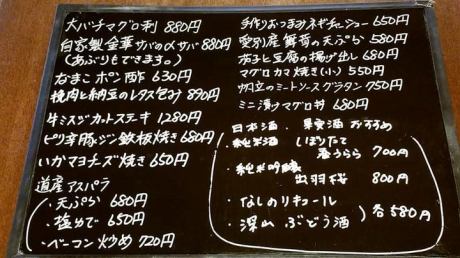 大バチマグロ刺 880円
自家製金華サバの〆サバ 880円
(あぶりもできます。)
なまこポン酢 630円
挽肉と納豆のレタス包み 890円
牛ミスジカットステーキ 1280円
ピリ辛豚ジン鉄板焼き 680円
いかマヨチーズ焼き 650円
道産アスパラ
・天ぷら 680円
・塩ゆで 650円
・ベーコン炒め 720円
手作りおつまみネギチャーシュー 650円
愛別産舞茸の天ぷら 580円
茄子と豆腐の揚げ出し 680円
マグロカマ焼き(小) 550円
帆立のミートソースグラタン 750円
ミニ漬けマグロ丼 680円
日本酒・果実酒おすすめ
・純米酒 しぼりたて
春うらら 700円
・純米吟醸
出羽桜 800円
・なしのリキュール
・深山ぶどう酒
各580円